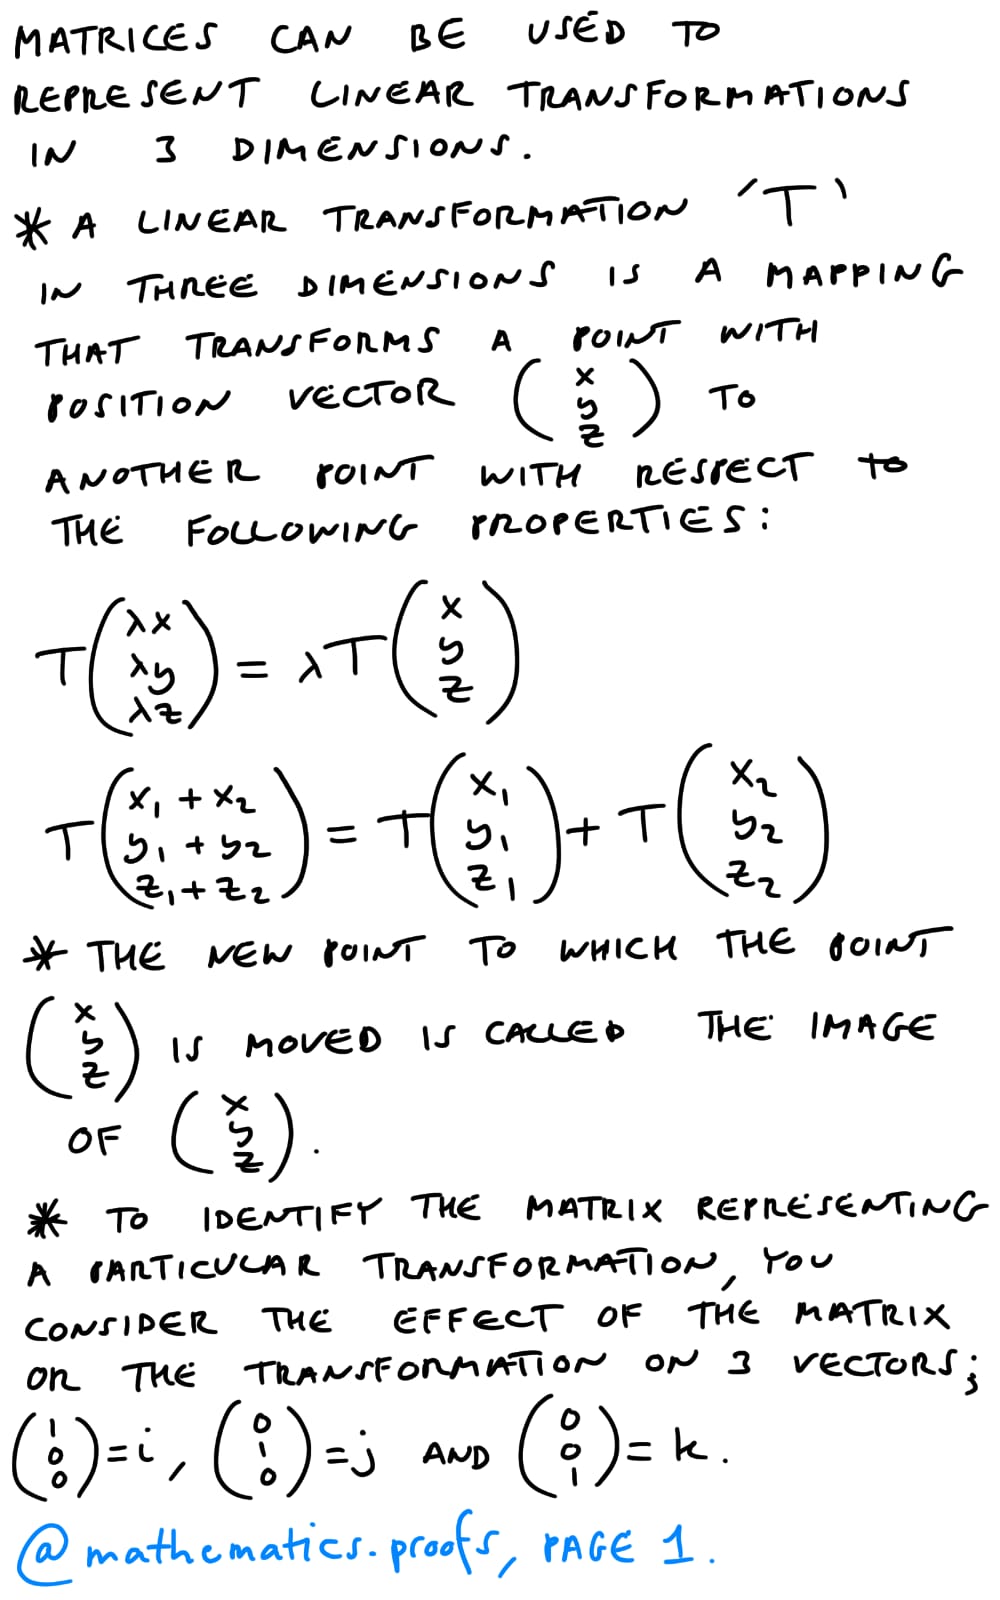 MATRICES CAN BE USED TO
REPRESENT LINEAR TRANSFORMATIONS
IN 3 DIMENSIONS.
* A LINEAR TRANSFORMATION 'T'
IN THREE DIMENSIONS IS A MAPPING
THAT TRANSFORMS A POINT WITH
POSITION VECTOR (x y z) TO
ANOTHER POINT WITH RESPECT to
THE FOLLOWING PROPERTIES:
T(λx λy λz) = λT(x y z)
T(x₁ + x₂ y₁ + y₂ z₁ + z₂) = T(x₁ y₁ z₁) + T(x₂ y₂ z₂)
* THE NEW POINT TO WHICH THE POINT
(x y z) IS MOVED IS CALLED THE IMAGE
OF (x y z).
* TO IDENTIFY THE MATRIX REPRESENTING
A PARTICULAR TRANSFORMATION, YOU
CONSIDER THE EFFECT OF THE MATRIX
OR THE TRANSFORMATION ON 3 VECTORS;
(1 0 0) = i, (0 1 0) = j AND (0 0 1) = k.
@mathematics.proofs, PAGE 1.